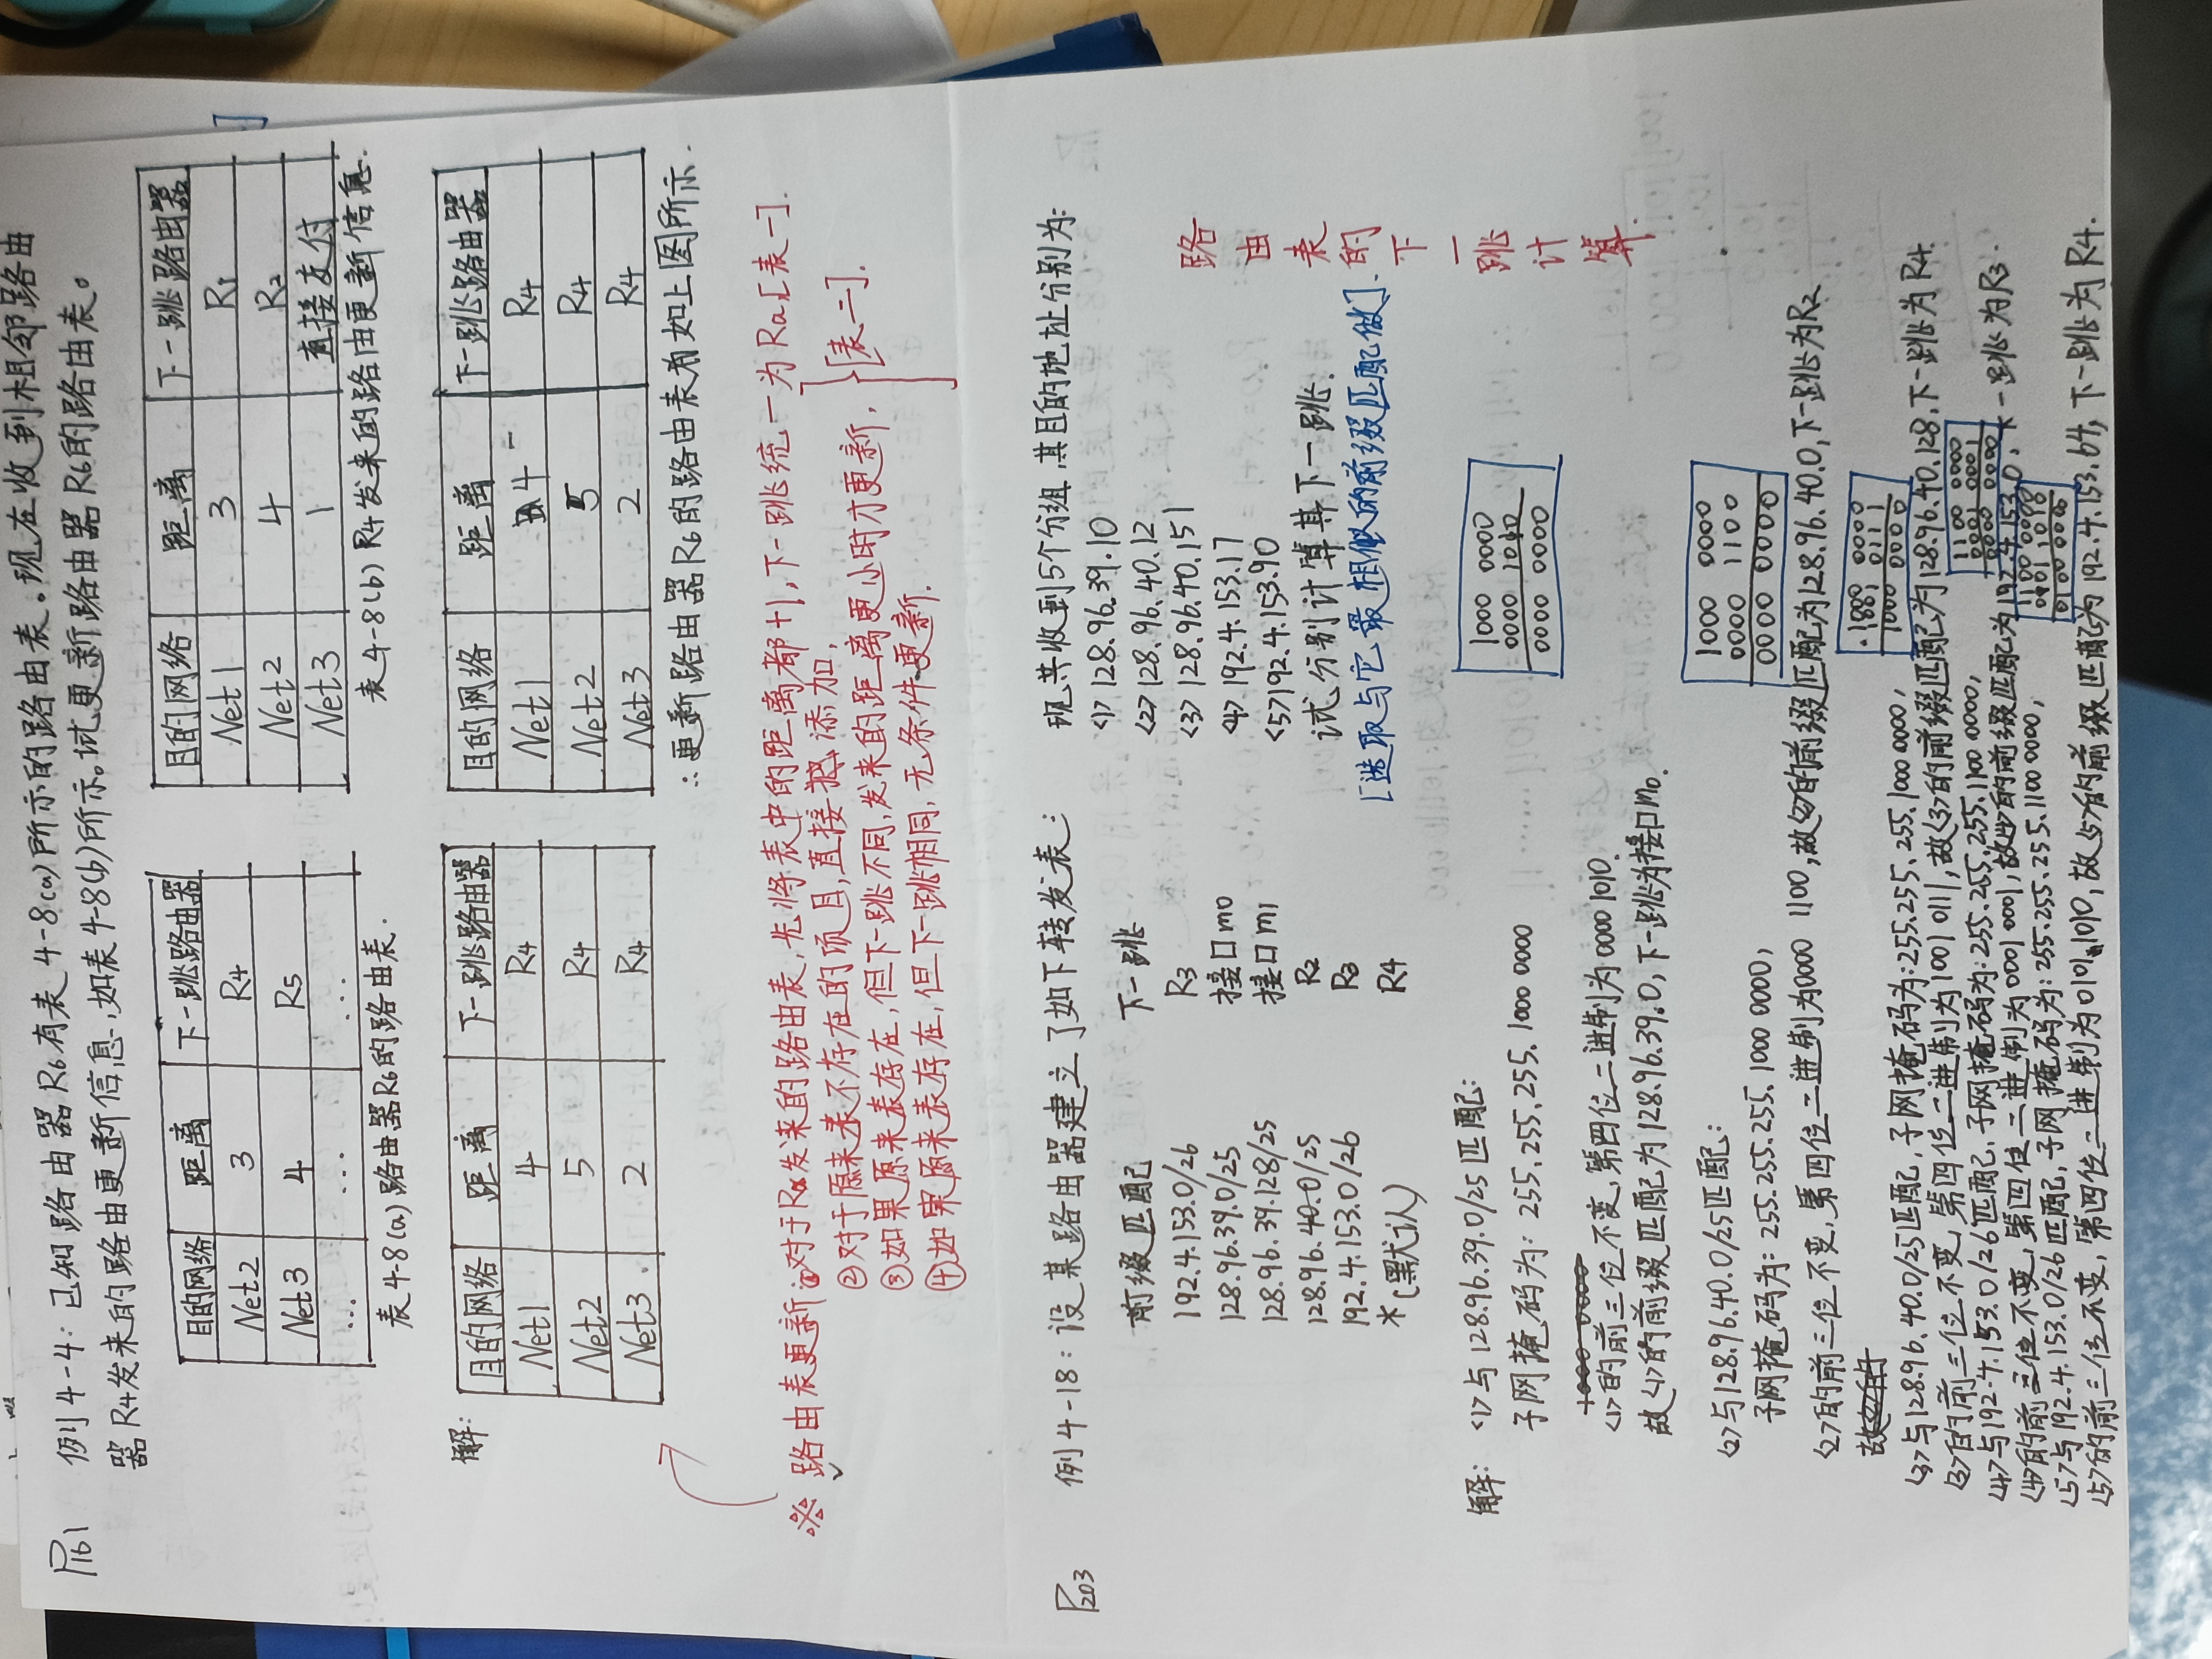 P161 例4-4：已知路由器R6有表4-8(a)所示的路由表。现在收到相邻路由
器R4发来的路由更新信息，如表4-8(b)所示。试更新路由器R6的路由表。
目的网络 距离 下一跳路由器
Net2 3 R4
Net3 4 R5
… … …
表4-8(a) 路由器R6的路由表.
目的网络 距离 下一跳路由器
Net1 3 R1
Net2 4 R2
Net3 1 直接交付
表4-8(b) R4发来的路由更新信息.
解:
目的网络 距离 下一跳路由器
Net1 4 R4
Net2 5 R4
Net3 2 R4
目的网络 距离 下一跳路由器
Net1 4 R4
Net2 5 R4
Net3 2 R4
∴更新路由器R6的路由表为如上图所示.
※ 路由表更新:①对于Ra发来的路由表,先将表中的距离都+1,下一跳统一为Ra[表一].
②对于原来表不存在的项目,直接添加,
③如果原来表存在,但下一跳不同,发来的距离更小时才更新,
④如果原来表存在,但下一跳相同,无条件更新.
[表二].
P203 例4-18：设某路由器建立了如下转发表:
前缀匹配 下一跳
192.4.153.0/26 R3
128.96.39.0/25 接口m0
128.96.39.128/25 接口m1
128.96.40.0/25 R2
192.4.153.0/26 R3
*(默认) R4
现共收到5个分组,其目的地址分别为:
<1> 128.96.39.10
<2> 128.96.40.12
<3> 128.96.40.151
<4> 192.4.153.17
<5> 192.4.153.90
试分别计算其下一跳.
[选取与它最相似的前缀匹配做].
路由表的下一跳计算.
解: <1>与128.96.39.0/25匹配:
子网掩码为: 255.255.255.1000 0000
<1>的前三位不变,第四位二进制为0000 1010.
故<1>的前缀匹配为128.96.39.0,下一跳为接口m0.
1000 0000
0000 1010
0000 0000
<2>与128.96.40.0/25匹配:
子网掩码为: 255.255.255.1000 0000,
<2>的前三位不变,第四位二进制为0000 1100,故<2>的前缀匹配为128.96.40.0,下一跳为R2
1000 0000
0000 1100
0000 0000
<3>与128.96.40.0/25匹配,子网掩码为:255.255.255.1000 0000,
<3>的前三位不变,第四位二进制为1001 0111,故<3>的前缀匹配为128.96.40.128,下一跳为R4.
<4>与192.4.153.0/26匹配,子网掩码为:255.255.255.1100 0000,
<4>的前三位不变,第四位二进制为0001 0001,故<4>的前缀匹配为192.4.153.0,下一跳为R3.
1100 0000
0001 0001
0000 0000
<5>与192.4.153.0/26匹配,子网掩码为:255.255.255.1100 0000,
<5>的前三位不变,第四位二进制为0101 1010,故<5>的前缀匹配为192.4.153.64,下一跳为R4.